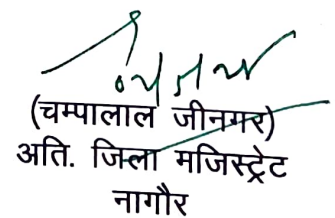 (चम्पालाल जीनगर)
अति. जिला मजिस्ट्रेट
नागौर